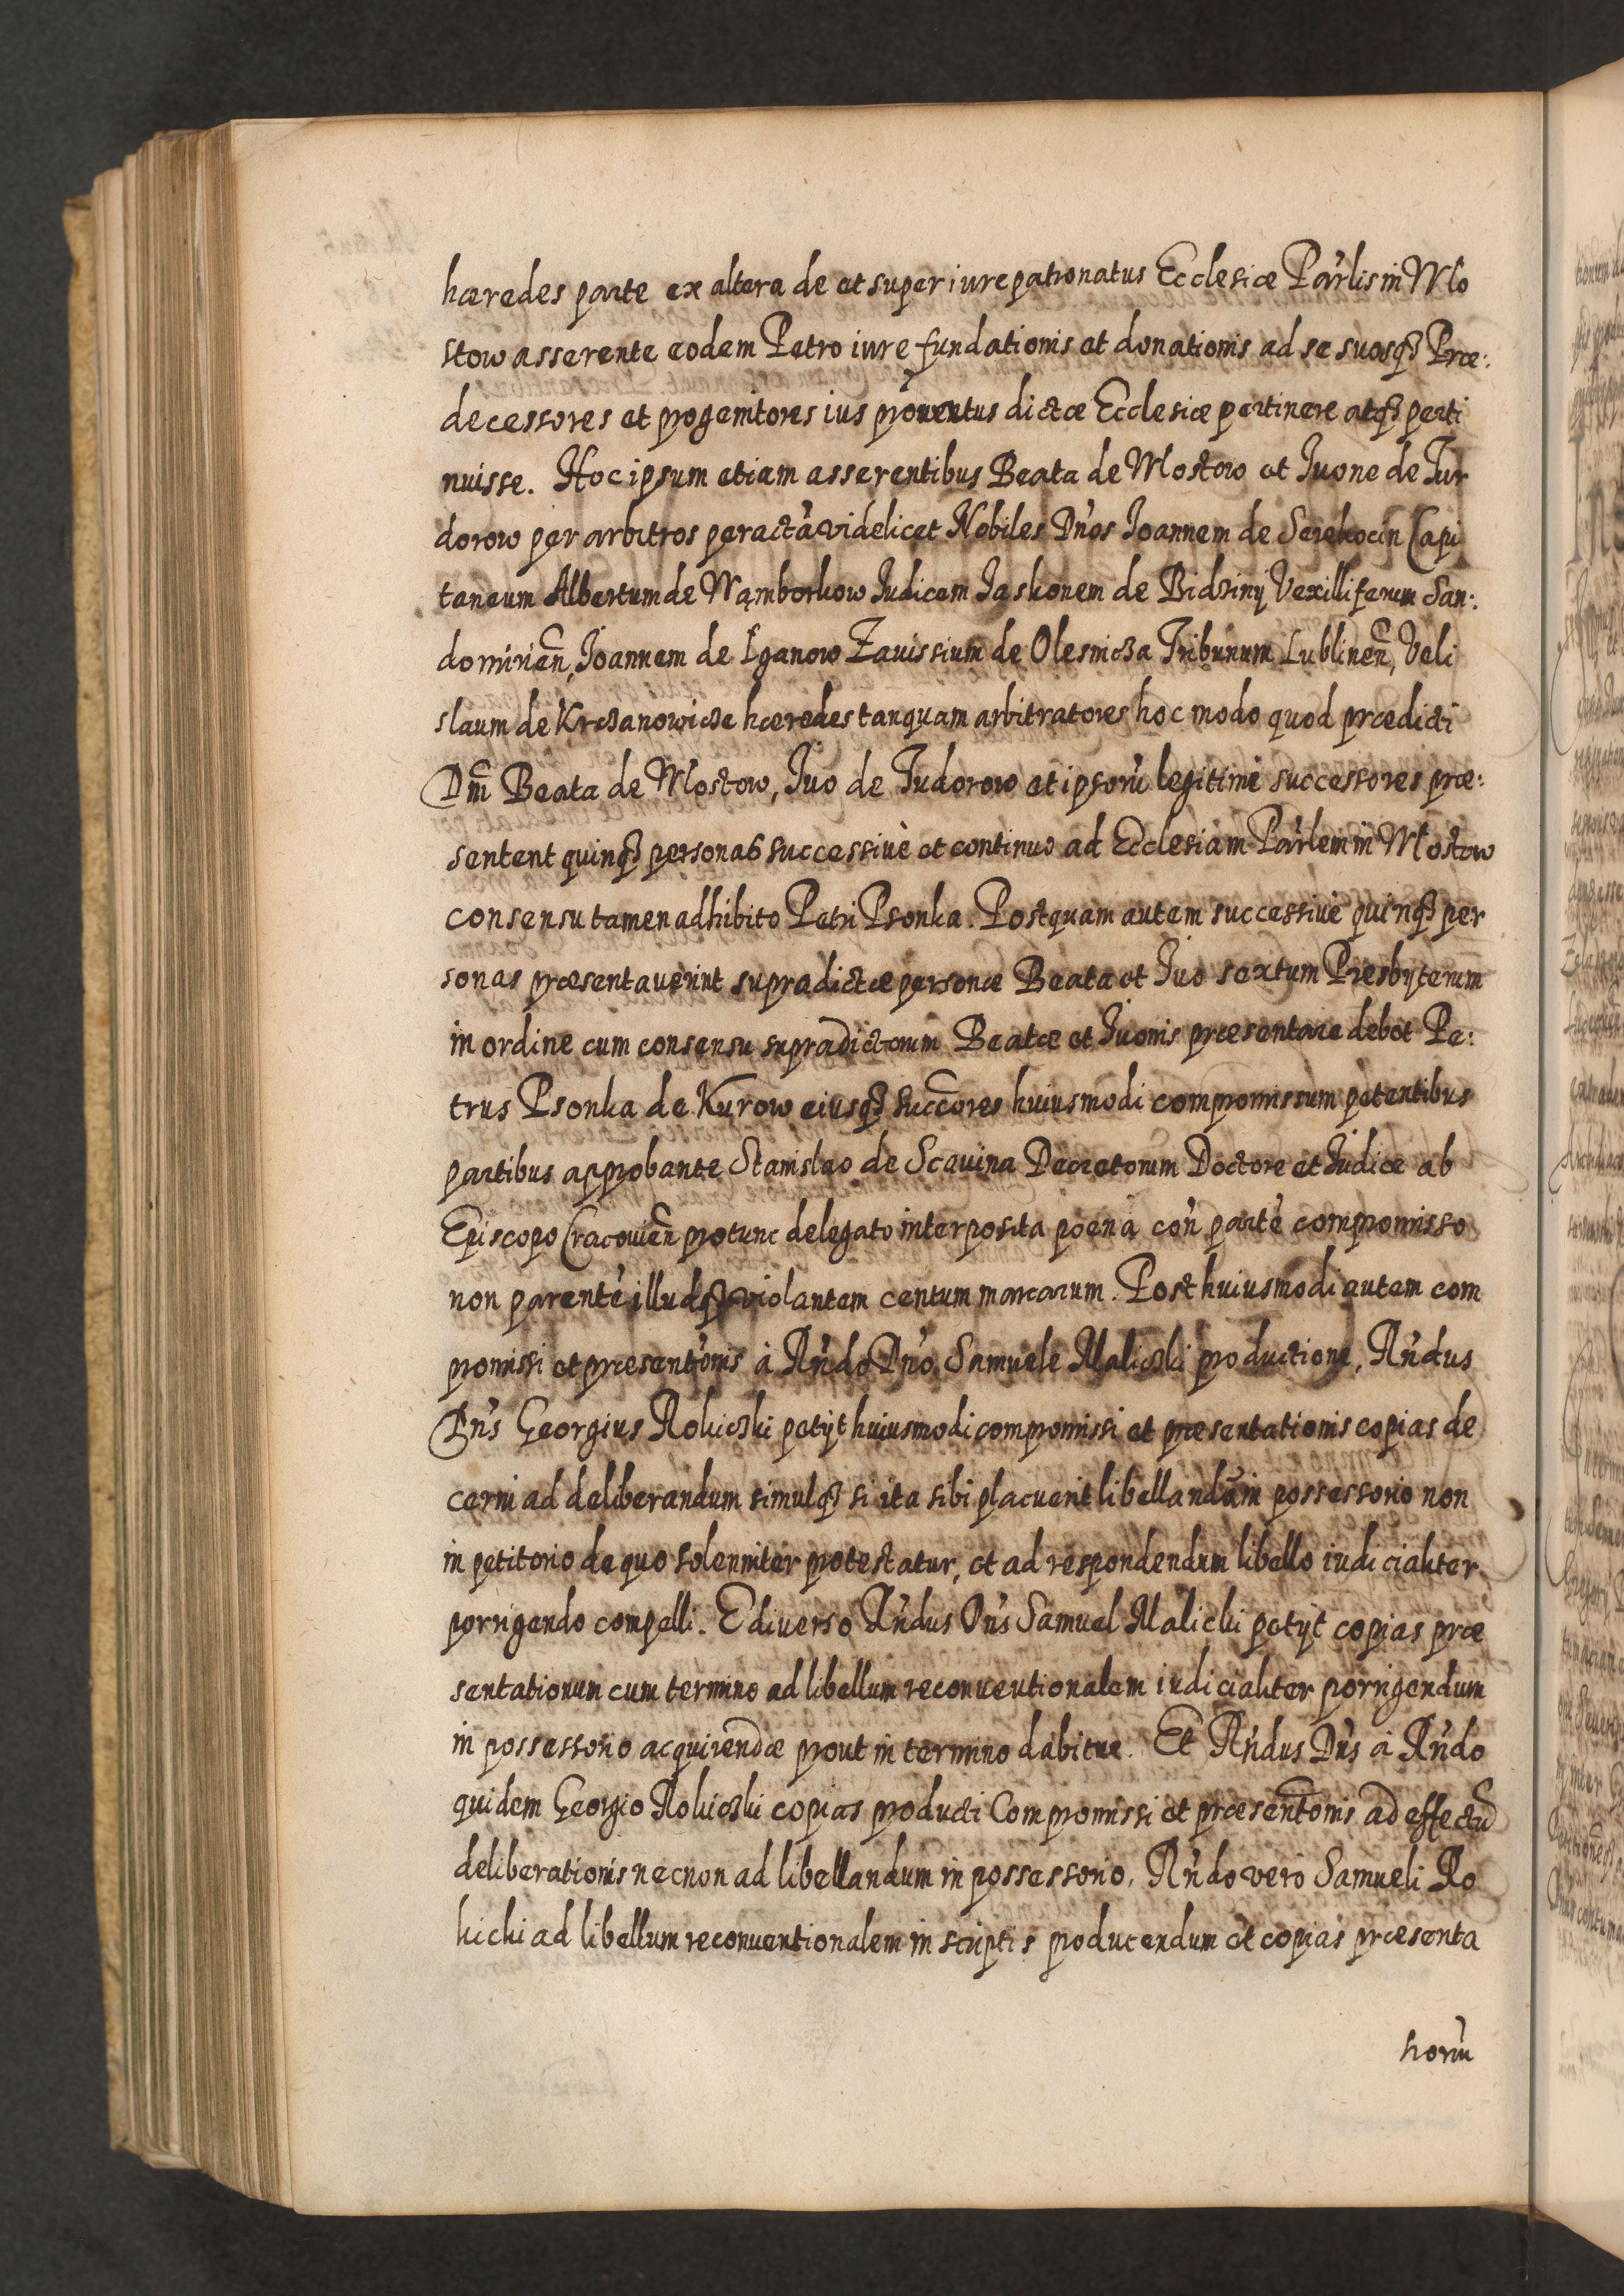 hæredes parte ex altera de et super iure patronatus Ecclesiæ Par̃lis in Mło
stow asserente eodem Petro iure fundationis et donationis ad se suosq3 Præ:
decessores et progenitores ius prouentus dictæ Ecclesiæ pertinere atq3 perti
nuisse. Hoc ipsum etiam asserentibus Beata de Włostow et Iuone de Tur
dorow per arbitros peractã videlicet Nobiles Dños Ioannem de Serekocin Capi
taneum Albertum de Wąmborkow Iudicem Jaskonem de Bidziny Vexilliferum San:
domirieñ, Joannem de Łganow Zauissium de Olesnicza Tribunum Lublineñ, Veli
slaum de Krczanowicze hæredes tanquam arbitratores hoc modo quod prædicti
Dñi Beata de Włostow, Iuo de Tudorow et ipsorũ legitimè successores præ:
sentent quinq3 personas successiuè et continuo ad Ecclesiam Par̃lem in Włostow
consensu tamen adhibito Petri Psonka. Postquam autem successiuè quinq3 per
sonas præsentauerint supradictæ personæ Beata et Iuo sextum Presbyterum
in ordine cum consensu supradictorum Beatæ et Iuonis præsentare debet Pe:
trus Psonka de Kurow eiusq3 succõres huiusmodi compromissum petentibus
partibus approbante Stanislao de Scauina Decretorum Doctore et Iudice ab
Episcopo Cracouieñ protunc delegato interposita poena coñ partẽ compromisso
non parentẽ illudq3 violantem centum marcarum. Post huiusmodi autem com
promissi et præsentõnis à Rñdo Dño Samuele Malicski productione, Rñdus
Dñs Georgius Rokicski petijt huiusmodi compromissi et præsentationis copias de
cerni ad deliberandum simulq3 si ita sibi placuerit libellandum in possessorio non
in petitorio de quo solenniter protestatur, et ad respondendum libello iudicialiter
porrigendo compelli. E diuerso Rñdus Dñs Samuel Malicki petijt copias præ
sentationum cum termino ad libellum reconuentionalem iudicialiter porrigendum
in possessorio acquirendæ prout in termino dabitur. Et Rñdus Dñs à Rñdo
quidem Georgio Rokicski copias producti Compromissi et præsentõnis ad effectũ
deliberationis necnon ad libellandum in possessorio, Rñdo vero Samueli Ro
kicki ad libellum reconuentionalem in scriptis producendum et copias præsenta
horũ